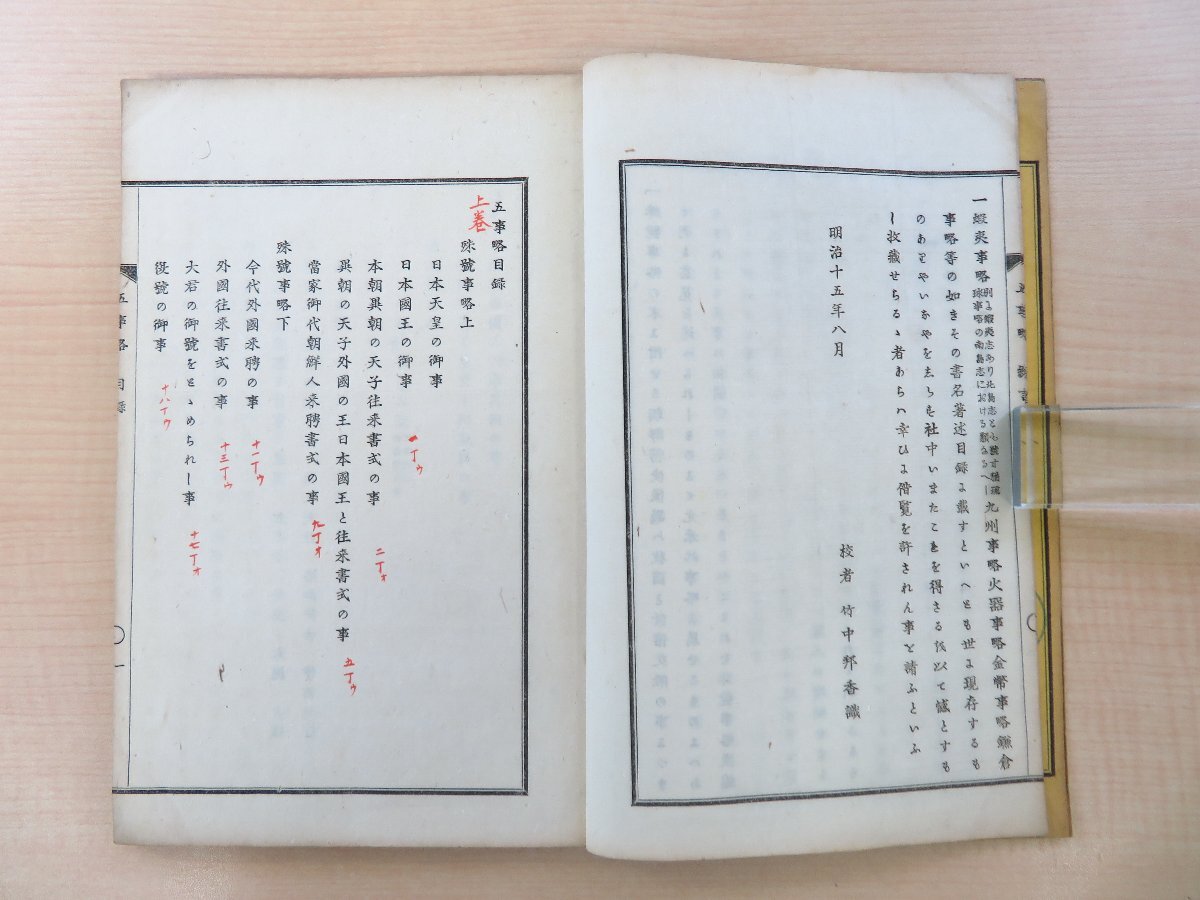 一蝦夷事略 別ㇵ蝦夷志あり北島志とも號す猶琉球事略の南島志におけるㇵ類なるへし 九州事略火器事略金幣事略鎌倉
事略等の如きその書名著述目録ㇵ載すといへとも世ㇵ現存するも
のありやいなやをしらも社中いまたこきを得さるを以て憾とすも
し收藏せらるゝ者あらハ幸ひㇵ借覧を許されん事を請ふといふ
明治十五年八月
校者 竹中邦香識
五事略目録
上巻
殊號事略上
日本天皇の御事
日本國王の御事 一丁ウ
本朝異朝の天子往来書式の事 二丁オ
異朝の天子外國の王日本國王と往来書式の事 五丁ウ
當家御代朝鮮人来聘書式の事 九丁オ
殊號事略下
今代外國来聘の事 十一丁ウ
外國往来書式の事 十三丁ウ
大君の御號をとゝめられし事 十七丁オ
復號の御事 十八丁ウ
五事略 目録
〇一
五事略